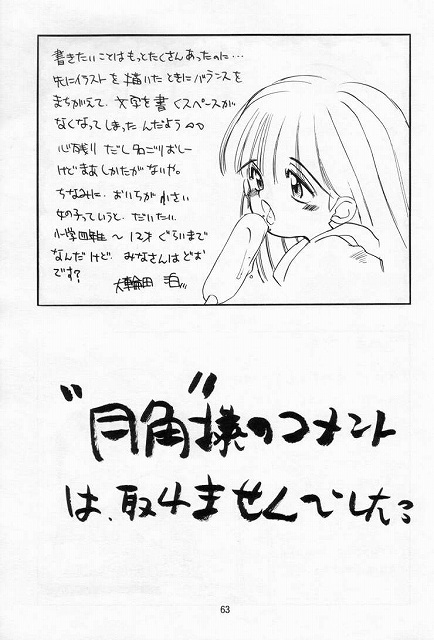 書きたいことはもっとたくさんあったのに…
先にイラストを描いたときにバランスを
まちがえて、文字を書くスペースが
なくなってしまったんだよう
心残りだしなごりおしー
けどまあしかたがないや。
ちなみに、おいらが小さい
女の子っていうと、だいたい
小学四年 〜 12才 ぐらいまで
なんだけど、みなさんはどお
です?
大輪田 泊
"月角"様のコメント
は、取れませんでした。
63